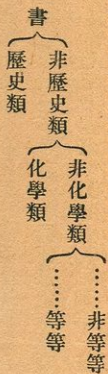 書
非歷史類
歷史類
非化學類
化學類
……非等等
……等等